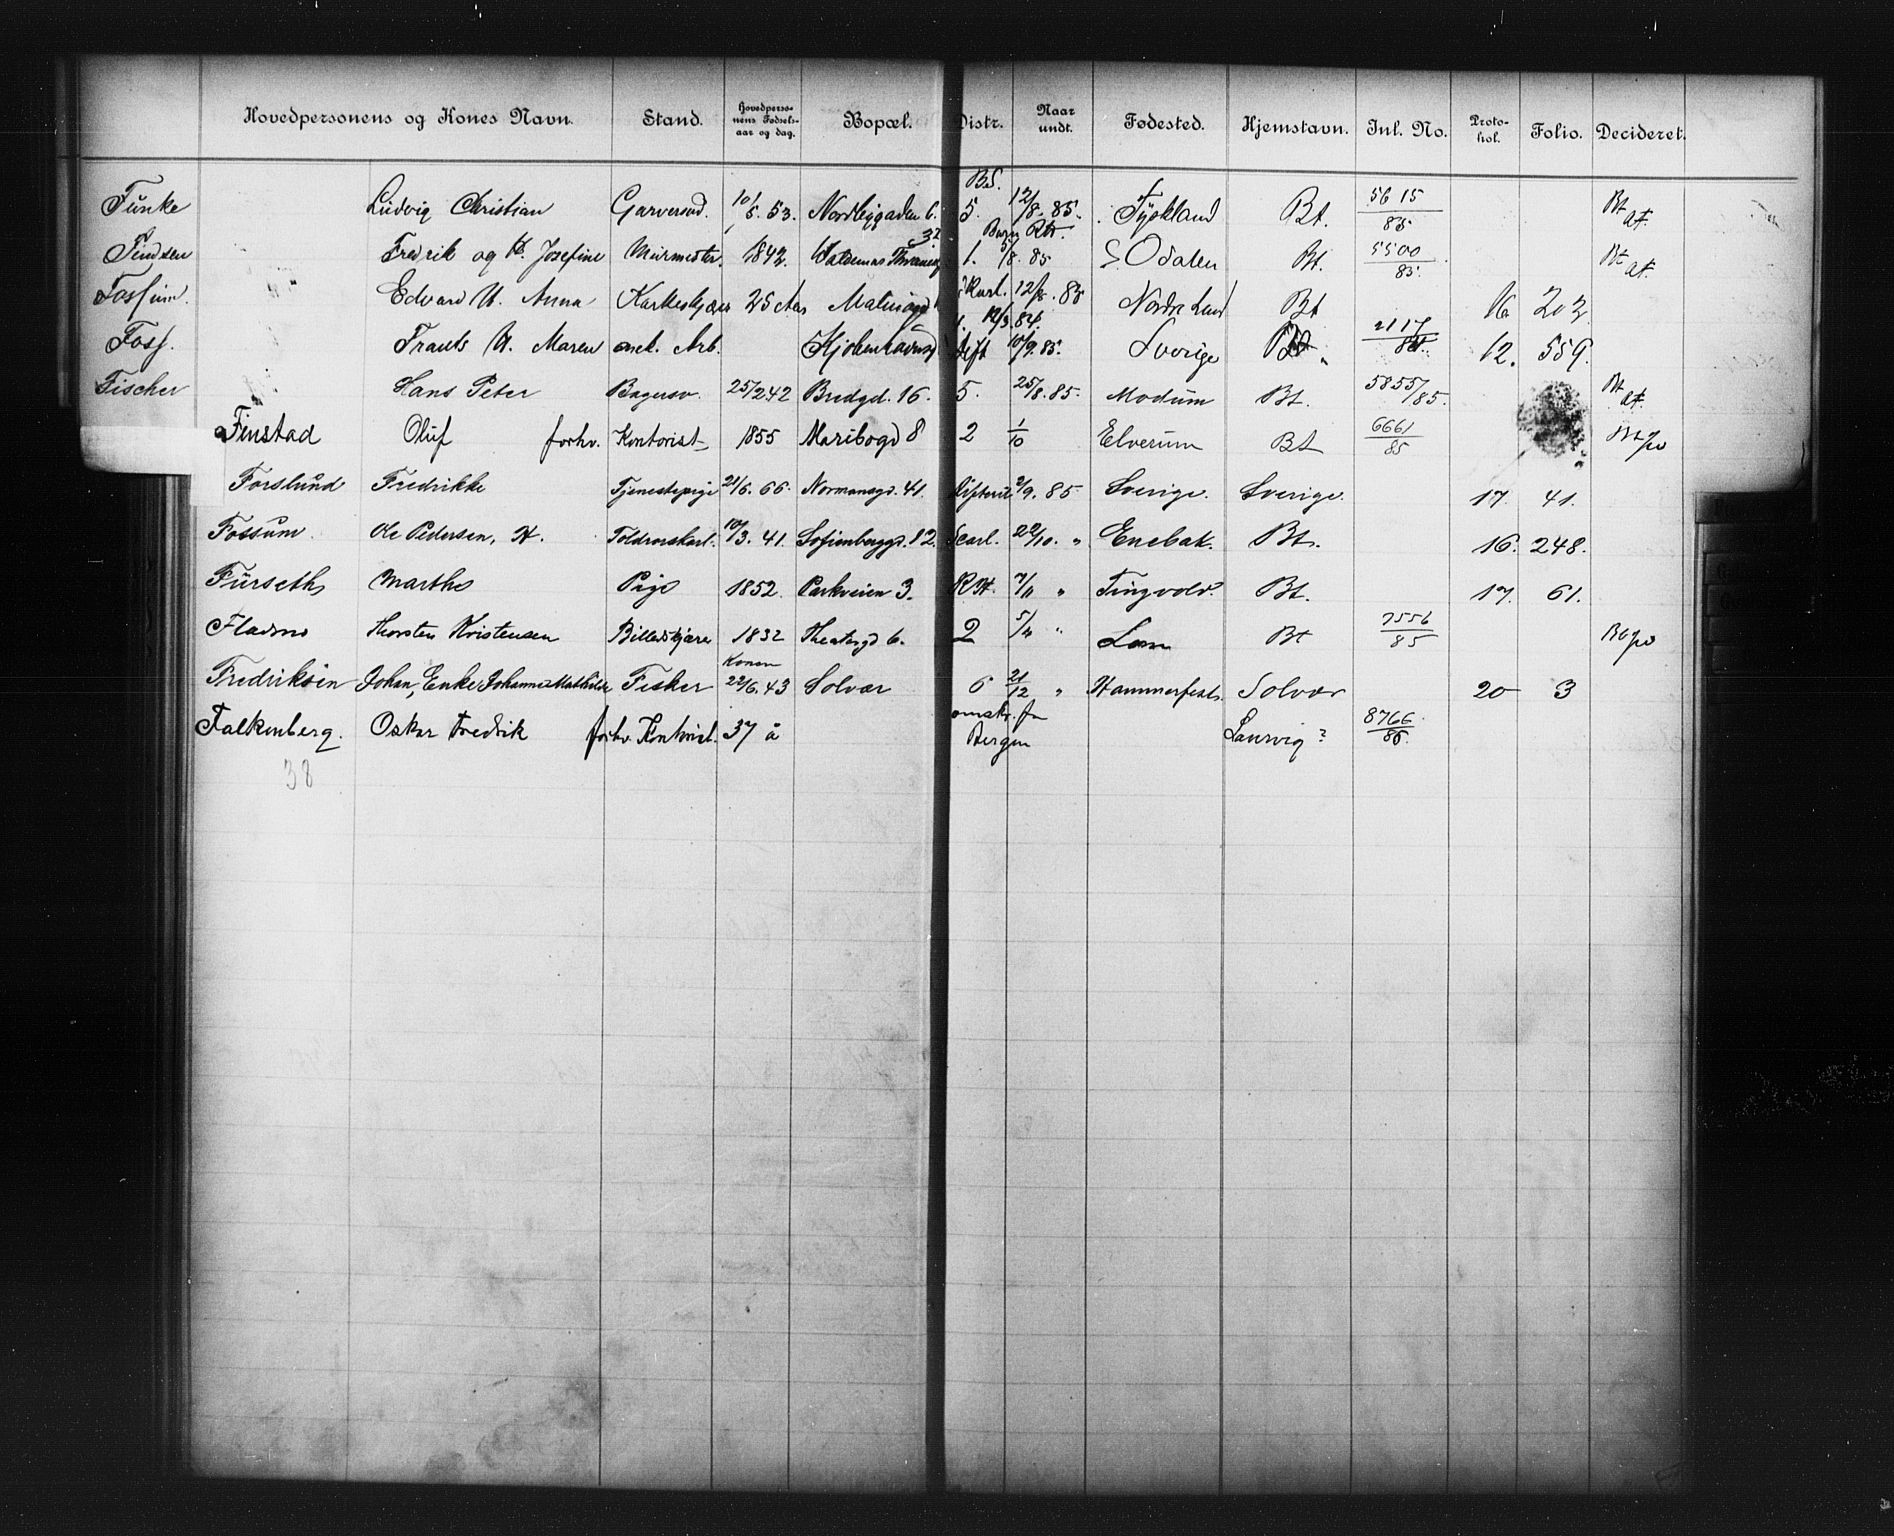 Hovedpersonens og Kones Navn. Stand. Hovedperso-nens Fødsels-aar og dag. Bopæl. Distr. Naar undt. Fødested. Hjemstavn. Inl. No. Proto-kol. Folio. Decideret.
Funke Ludvig Christian Garversvd. 10/5. 53. 5. 12/8. 85. Tyskland Bt. 5615/85 Bt
Fredrik og Josefine Murmester. 1842. 1. 5/8. 85 S. Odalen Bt. 5500/85. Bt
Fossum Edvard H. Anna 25 Aar 12/8. 85 Nordre Land Bt 16 203
Foss. Frants H. Maren Arb. Kjøbenhavnsg 10/9. 85. Sverige 2117 12. 559.
Fischer Hans Peter Bagersv. 25/2 42 Bredgd. 16. 5. 25/8. 85. Modum Bt. 5855/85. Bt
Finstad Oluf forhv. Kontorist 1855 Maribogd 8 2 1/10 Elverum Bt 6661/85
Forslund Fredrikke Tjenestepige 21/6. 66. Normansgd. 41. 2/9. 85. Sverige. Sverige. 17. 41.
Fossum. Ole Pedersen, H. Toldrorskarl. 10/3. 41. Sofienberggd. 12. 22/10. " Enebak. Bt. 16. 248.
Furseth Marthe Pige 1852. Parkveien 3. 7/11 " Tingvold. Bt. 17. 61.
Fladmo Thorsten Kristensen Billedskjærer 1832 Theatergd 6. 2 Lom Bt 7556/85
Fredriksen Johan, Enke Johanne Mathilde Fisker Konen 22/6. 43 Solvær 6 21/12 " Hammerfest. Solvær 20 3
Falkenberg. Oskar Fredrik forhv. Kontorist. 37 å omstr. fra Bergen Laurvig? 8766/85.
38